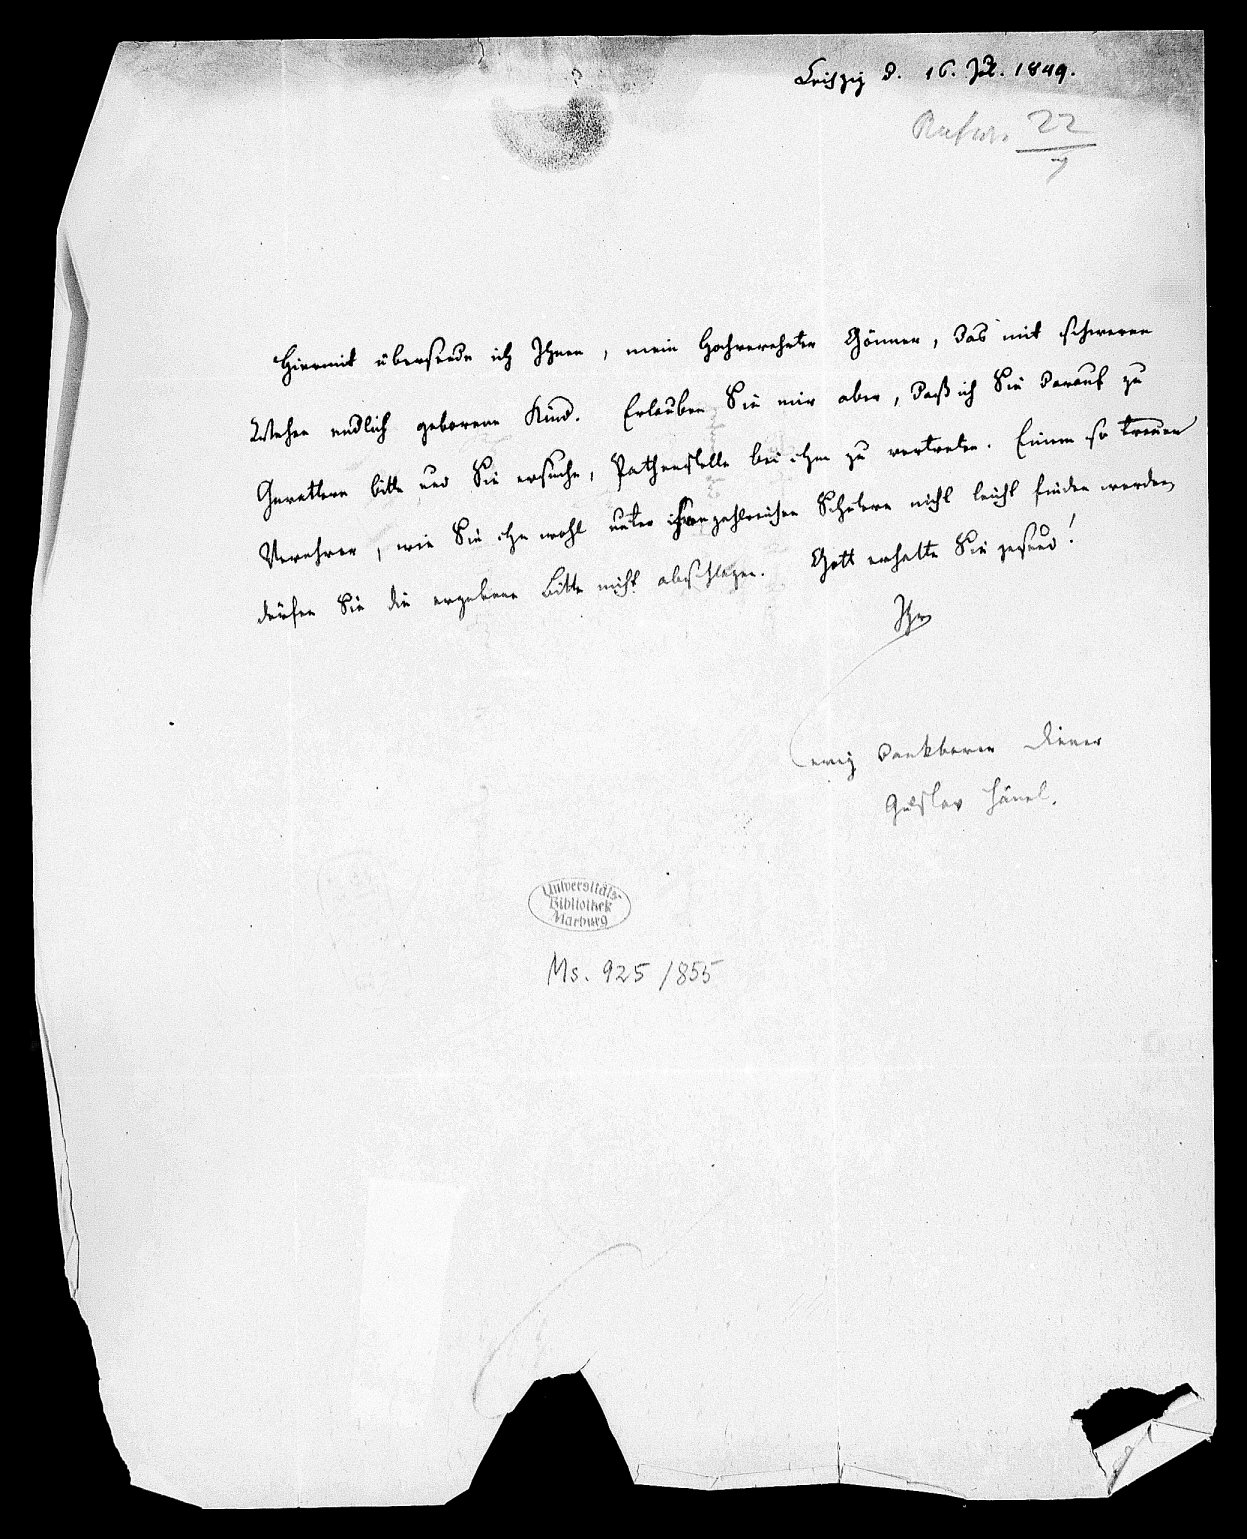 Leipzig d. 16. Jul. 1849.
22
Hiermit übersende ich Ihnen, mein hochverehrter Gönner, das mit schweren
Wehen endlich geborene Kind. Erlauben Sie mir aber, daß ich Sie darauf zu
Gevattern bitte und Sie ersuche, Pathenstelle bei ihm zu vertreten. Einen so treuen
Verehrer, wie Sie ihn wohl unter ihren zahlreichen Schülern nicht leicht finden werden,
dürfen Sie die ergebene Bitte nicht abschlagen. Gott erhalte Sie gesund!
Ihr
ewig dankbarer Diener
Gustav Hänel.
Universitäts-
Bibliothek
Marburg
Ms. 925/855